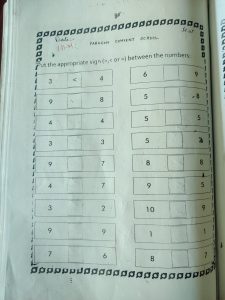 PARAGON CONVENT SCHOOL
Put the appropriate sign (>, < or =) between the numbers:
3 < 4 6 9
9 8 5 8
4 4 5 5
3 3 5
9 7 8 8
7 4 9 5
3 2 10 9
9 9 1 1
7 6 8 7